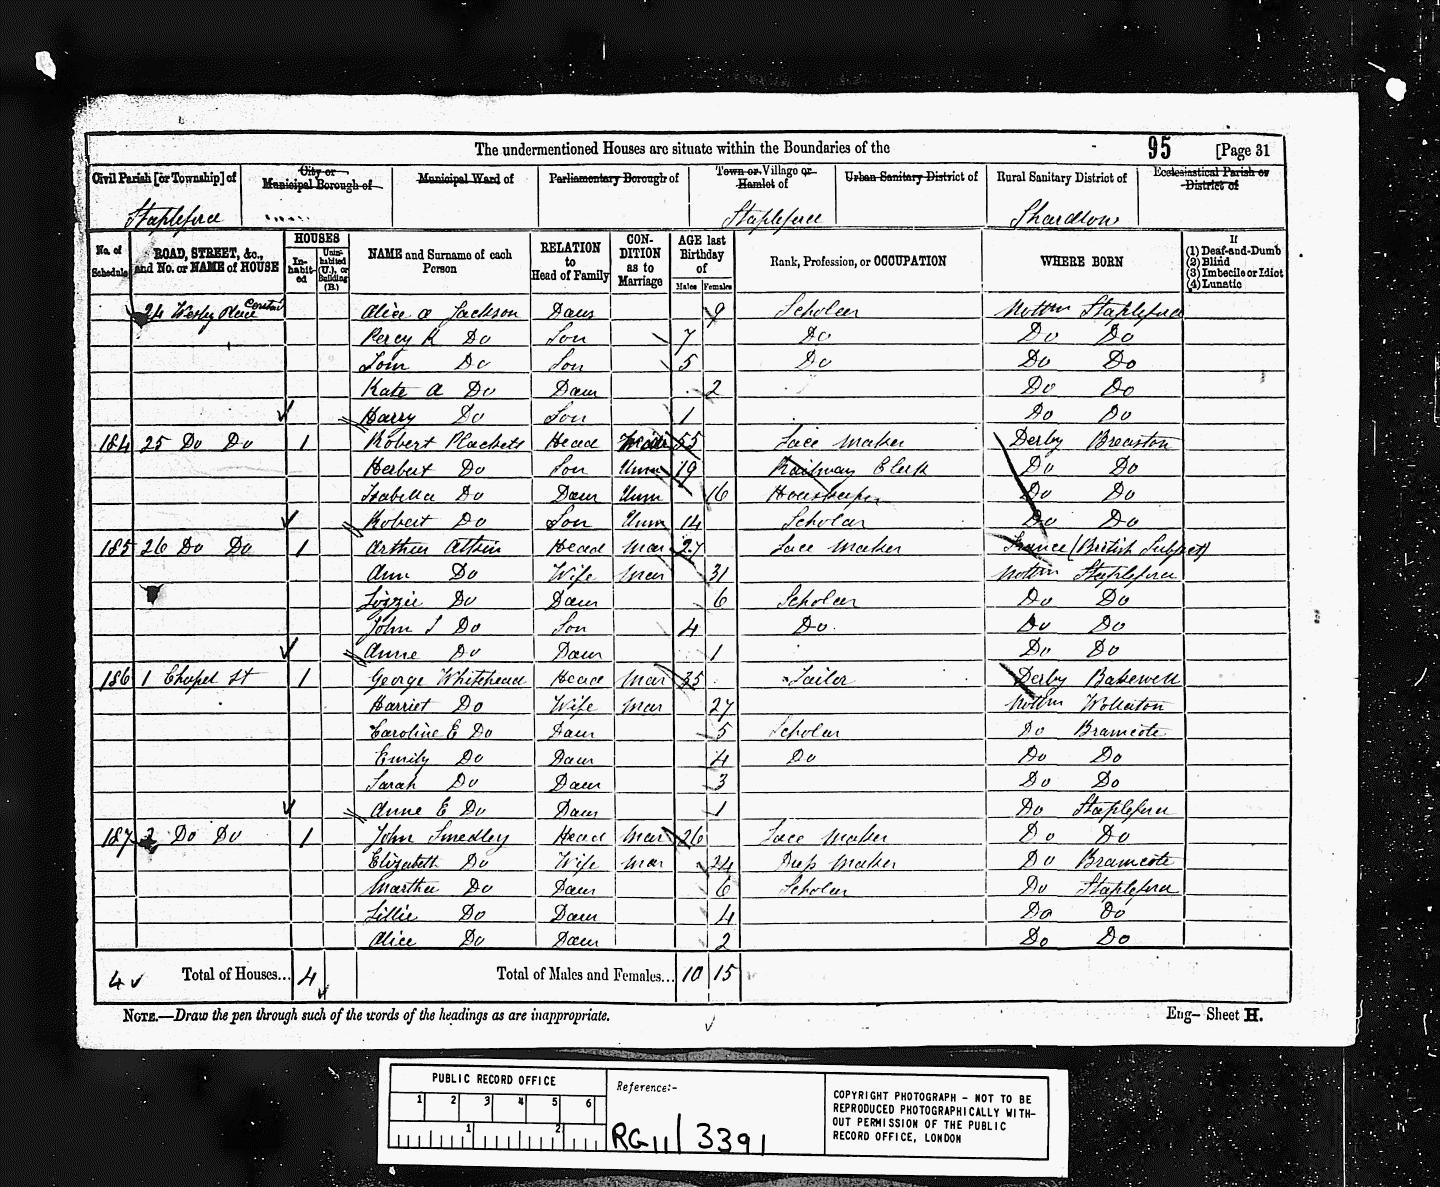 The undermentioned Houses are situate within the Boundaries of the 95 [Page 31
Civil Parish [or Township] of City or Municipal Borough of Municipal Ward of Parliamentary Borough of Town or Village or Hamlet of Urban Sanitary District of Rural Sanitary District of Ecclesiastical Parish or District of
Stapleford Stapleford Shardlow
No. of Schedule ROAD, STREET, &c., and No. or NAME of HOUSE HOUSES In-habit-ed Unin-habited (U.), or Building (B.) NAME and Surname of each Person RELATION to Head of Family CON-DITION as to Marriage AGE last Birthday of Males Females Rank, Profession, or OCCUPATION WHERE BORN If (1) Deaf-and-Dumb (2) Blind (3) Imbecile or Idiot (4) Lunatic
24 Wesley Place Contd Alice A Jackson Daur 9 Scholar Nottm Stapleford
Percy K Do Son 7 Do Do Do
Tom Do Son 5 Do Do Do
Kate A Do Daur 2 Do Do
Harry Do Son 1 Do Do
184 25 Do Do 1 Robert Plackett Head 55 Lace Maker Derby Breaston
Herbert Do Son Unm 19 Railway Clerk Do Do
Isabella Do Daur Unm 16 Housekeeper Do Do
Robert Do Son Unm 14 Scholar Do Do
185 26 Do Do 1 Arthur Atkin Head Mar 27 Lace Maker France (British Subject)
Ann Do Wife Mar 31 Nottm Stapleford
Lizzie Do Daur 6 Scholar Do Do
John S Do Son 4 Do Do Do
Anne Do Daur 1 Do Do
186 1 Chapel St 1 George Whitehead Head Mar 35 Tailor Derby Bakewell
Harriet Do Wife Mar 27 Nottm Wollaton
Caroline E Do Daur 5 Scholar Do Bramcote
Emily Do Daur 4 Do Do Do
Sarah Do Daur 3 Do Do
Anne E Do Daur 1 Do Stapleford
187 2 Do Do 1 John Smedley Head Mar 26 Lace Maker Do Do
Elizabeth Do Wife Mar 24 Maker Do Bramcote
Martha Do Daur 6 Scholar Do Stapleford
Lillie Do Daur 4 Do Do
Alice Do Daur 2 Do Do
4 Total of Houses... 4 Total of Males and Females... 10 15
NOTE.—Draw the pen through such of the words of the headings as are inappropriate. Eng– Sheet H.
PUBLIC RECORD OFFICE
1 2 3 4 5 6
1 2
Reference:-
RG11/3391
COPYRIGHT PHOTOGRAPH - NOT TO BE
REPRODUCED PHOTOGRAPHICALLY WITH-
OUT PERMISSION OF THE PUBLIC
RECORD OFFICE, LONDON